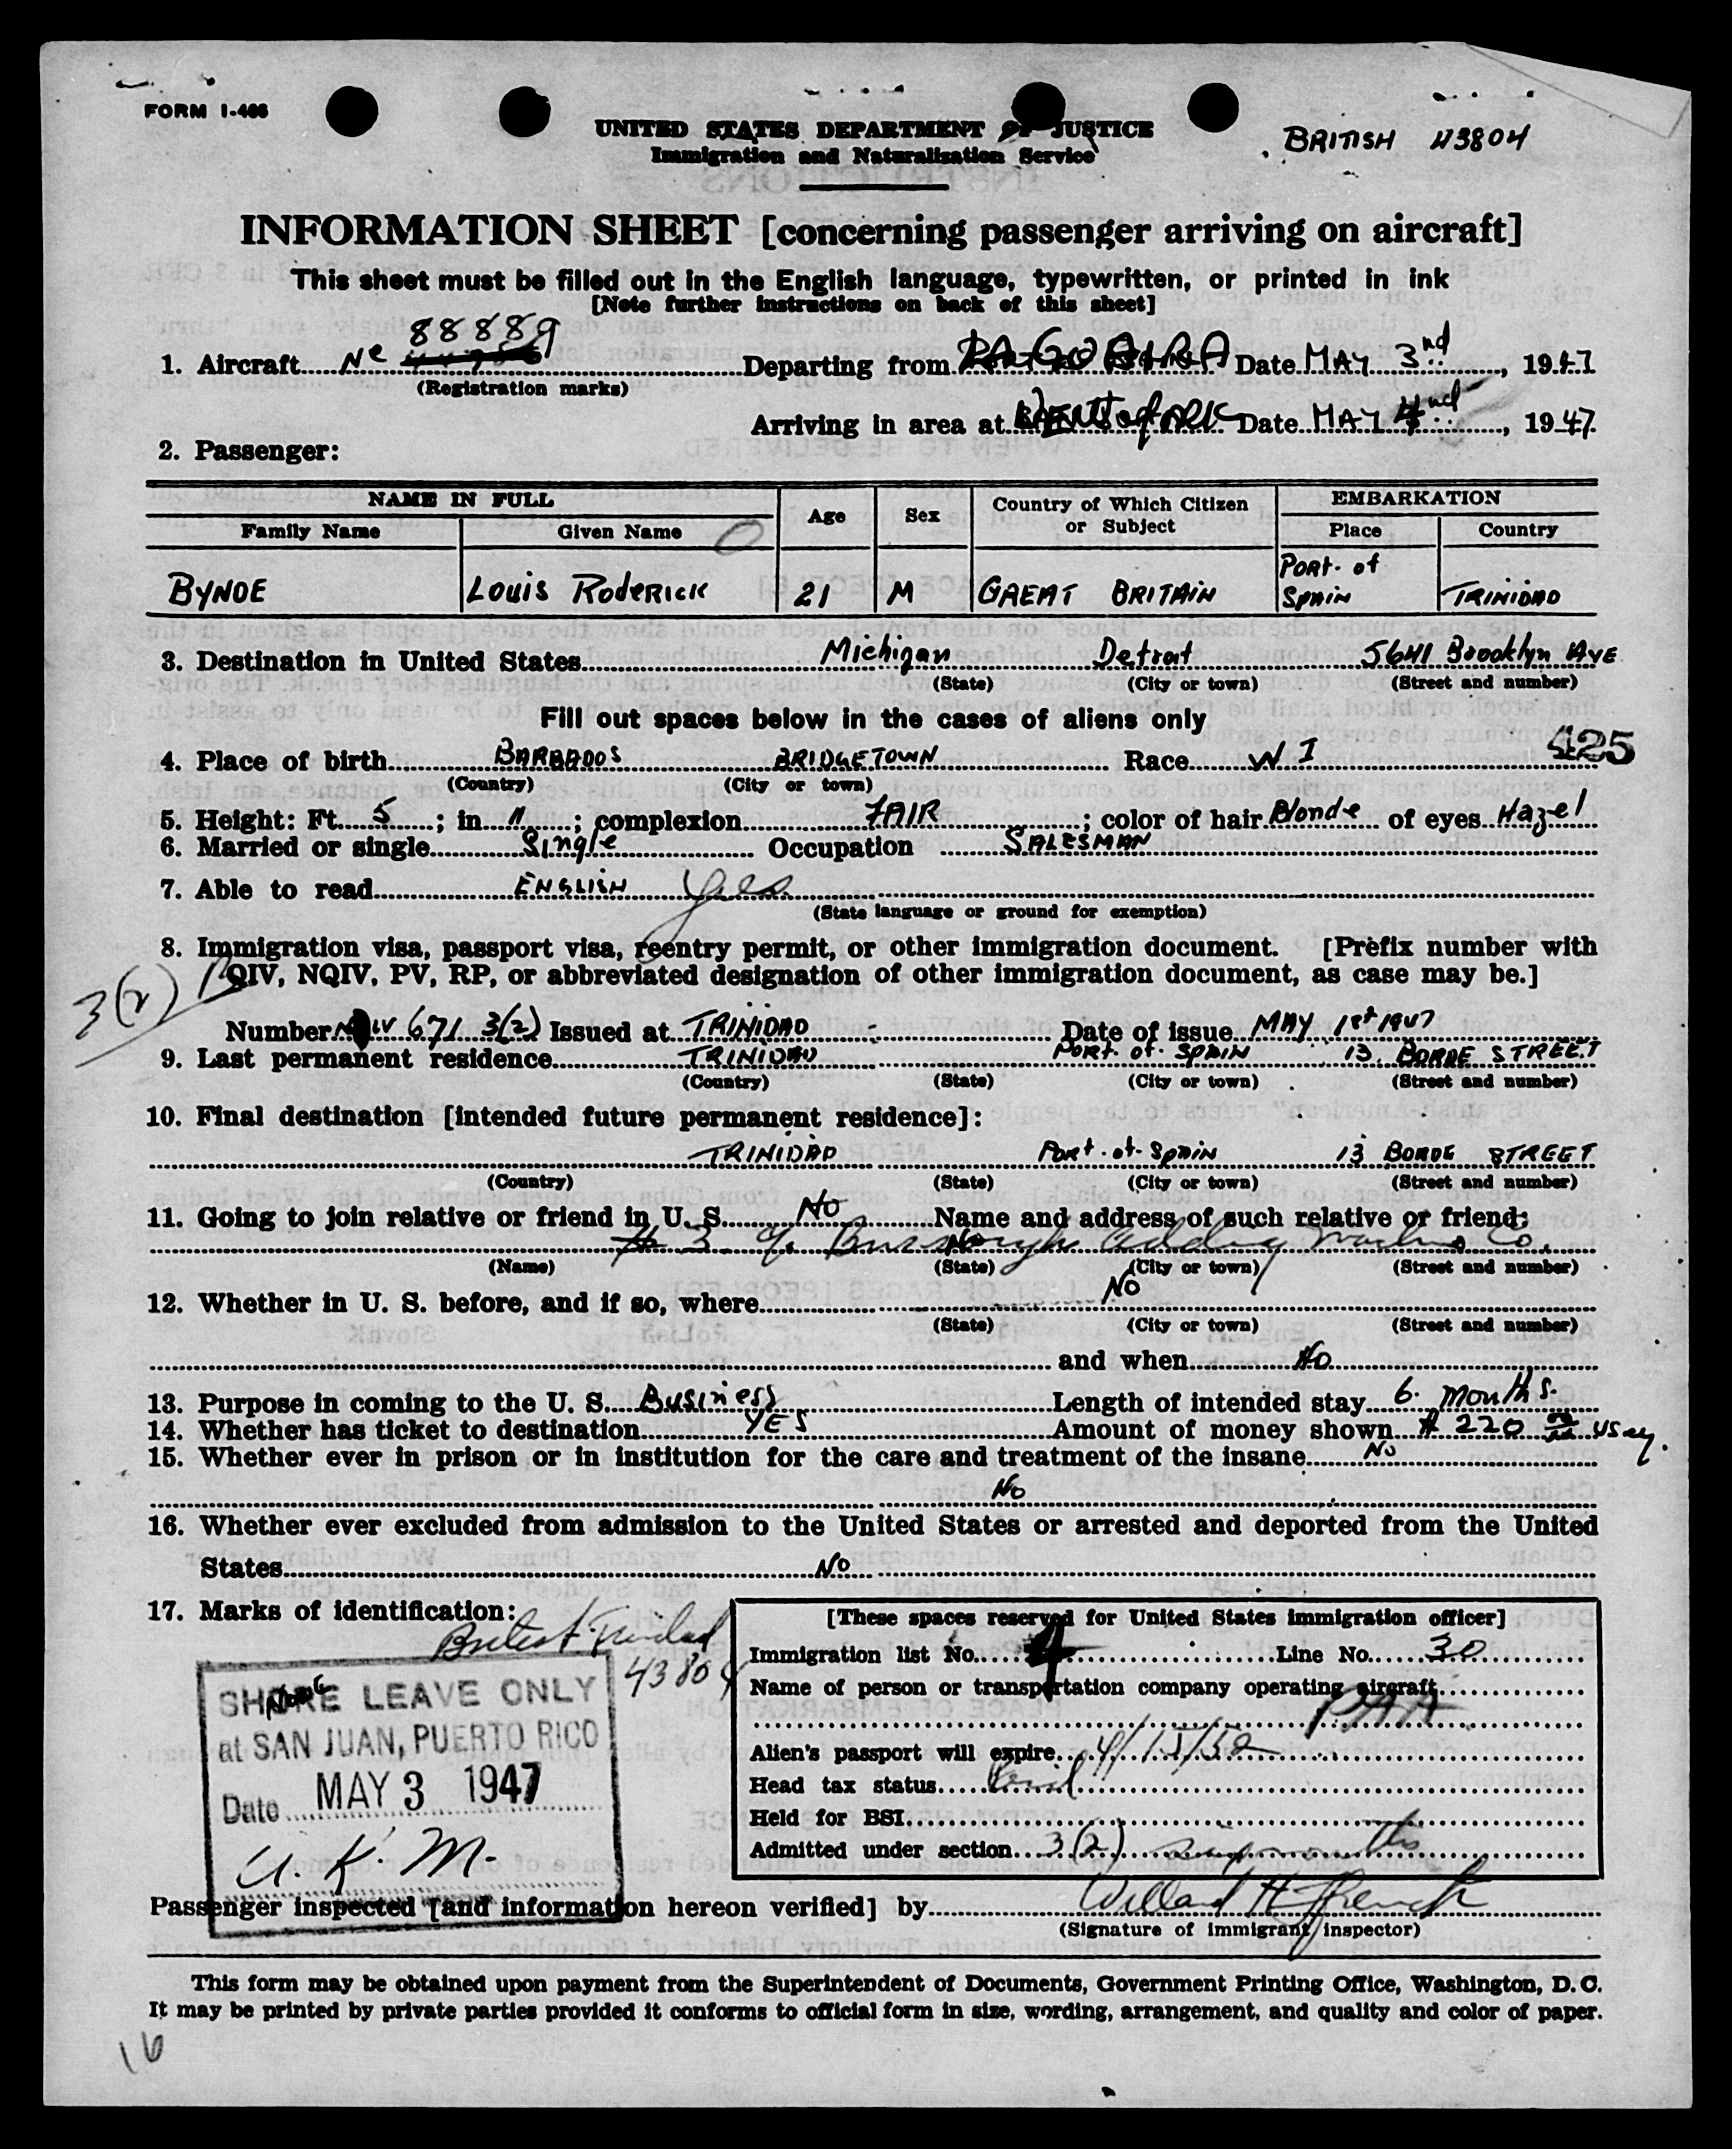 FORM I-466
UNITED STATES DEPARTMENT OF JUSTICE
Immigration and Naturalization Service
BRITISH 43804
INFORMATION SHEET [concerning passenger arriving on aircraft]
This sheet must be filled out in the English language, typewritten, or printed in ink
[Note further instructions on back of this sheet]
88889
1. Aircraft Nc Departing from LA GUAIRA Date MAY 3nd, 1947
(Registration marks)
Arriving in area at Date MAY 4nd, 1947
2. Passenger:
NAME IN FULL Age Sex Country of Which Citizen or Subject EMBARKATION
Family Name Given Name Place Country
BYNOE Louis Roderick 21 M GREAT BRITAIN Port. of Spain TRINIDAD
3. Destination in United States Michigan Detroit 5641 Brooklyn Ave
(State) (City or town) (Street and number)
Fill out spaces below in the cases of aliens only
425
4. Place of birth BARBADOS BRIDGETOWN Race W I
(Country) (City or town)
5. Height: Ft. 5; in. 11; complexion FAIR; color of hair Blonde of eyes Hazel
6. Married or single Single Occupation SALESMAN
7. Able to read ENGLISH yes
(State language or ground for exemption)
8. Immigration visa, passport visa, reentry permit, or other immigration document. [Prefix number with
QIV, NQIV, PV, RP, or abbreviated designation of other immigration document, as case may be.]
3(2)
Number 671 3(2) Issued at TRINIDAD Date of issue MAY 1st 1947
9. Last permanent residence TRINIDAD Port. of. Spain 13. BORDE STREET
(Country) (State) (City or town) (Street and number)
10. Final destination [intended future permanent residence]:
TRINIDAD Port. of. Spain 13 BORDE STREET
(Country) (State) (City or town) (Street and number)
11. Going to join relative or friend in U. S. No Name and address of such relative or friend:
# 3 c/o Burroughs Adding Machine Co. No
(Name) (State) (City or town) (Street and number)
12. Whether in U. S. before, and if so, where No
(State) (City or town) (Street and number)
and when No
13. Purpose in coming to the U. S. Business Length of intended stay 6. Months.
14. Whether has ticket to destination YES Amount of money shown $ 220 US cy.
15. Whether ever in prison or in institution for the care and treatment of the insane No
No
16. Whether ever excluded from admission to the United States or arrested and deported from the United
States No
17. Marks of identification:
British Trinidad
43804
None
SHORE LEAVE ONLY
at SAN JUAN, PUERTO RICO
Date MAY 3 1947
U. K. M.
[These spaces reserved for United States immigration officer]
Immigration list No. 4 Line No. 30
Name of person or transportation company operating aircraft
PAA
Alien's passport will expire 4/15/52
Head tax status
Held for BSI
Admitted under section 3(2) six months
Passenger inspected [and information hereon verified] by Willard H. French
(Signature of immigrant inspector)
This form may be obtained upon payment from the Superintendent of Documents, Government Printing Office, Washington, D. C.
It may be printed by private parties provided it conforms to official form in size, wording, arrangement, and quality and color of paper.
16